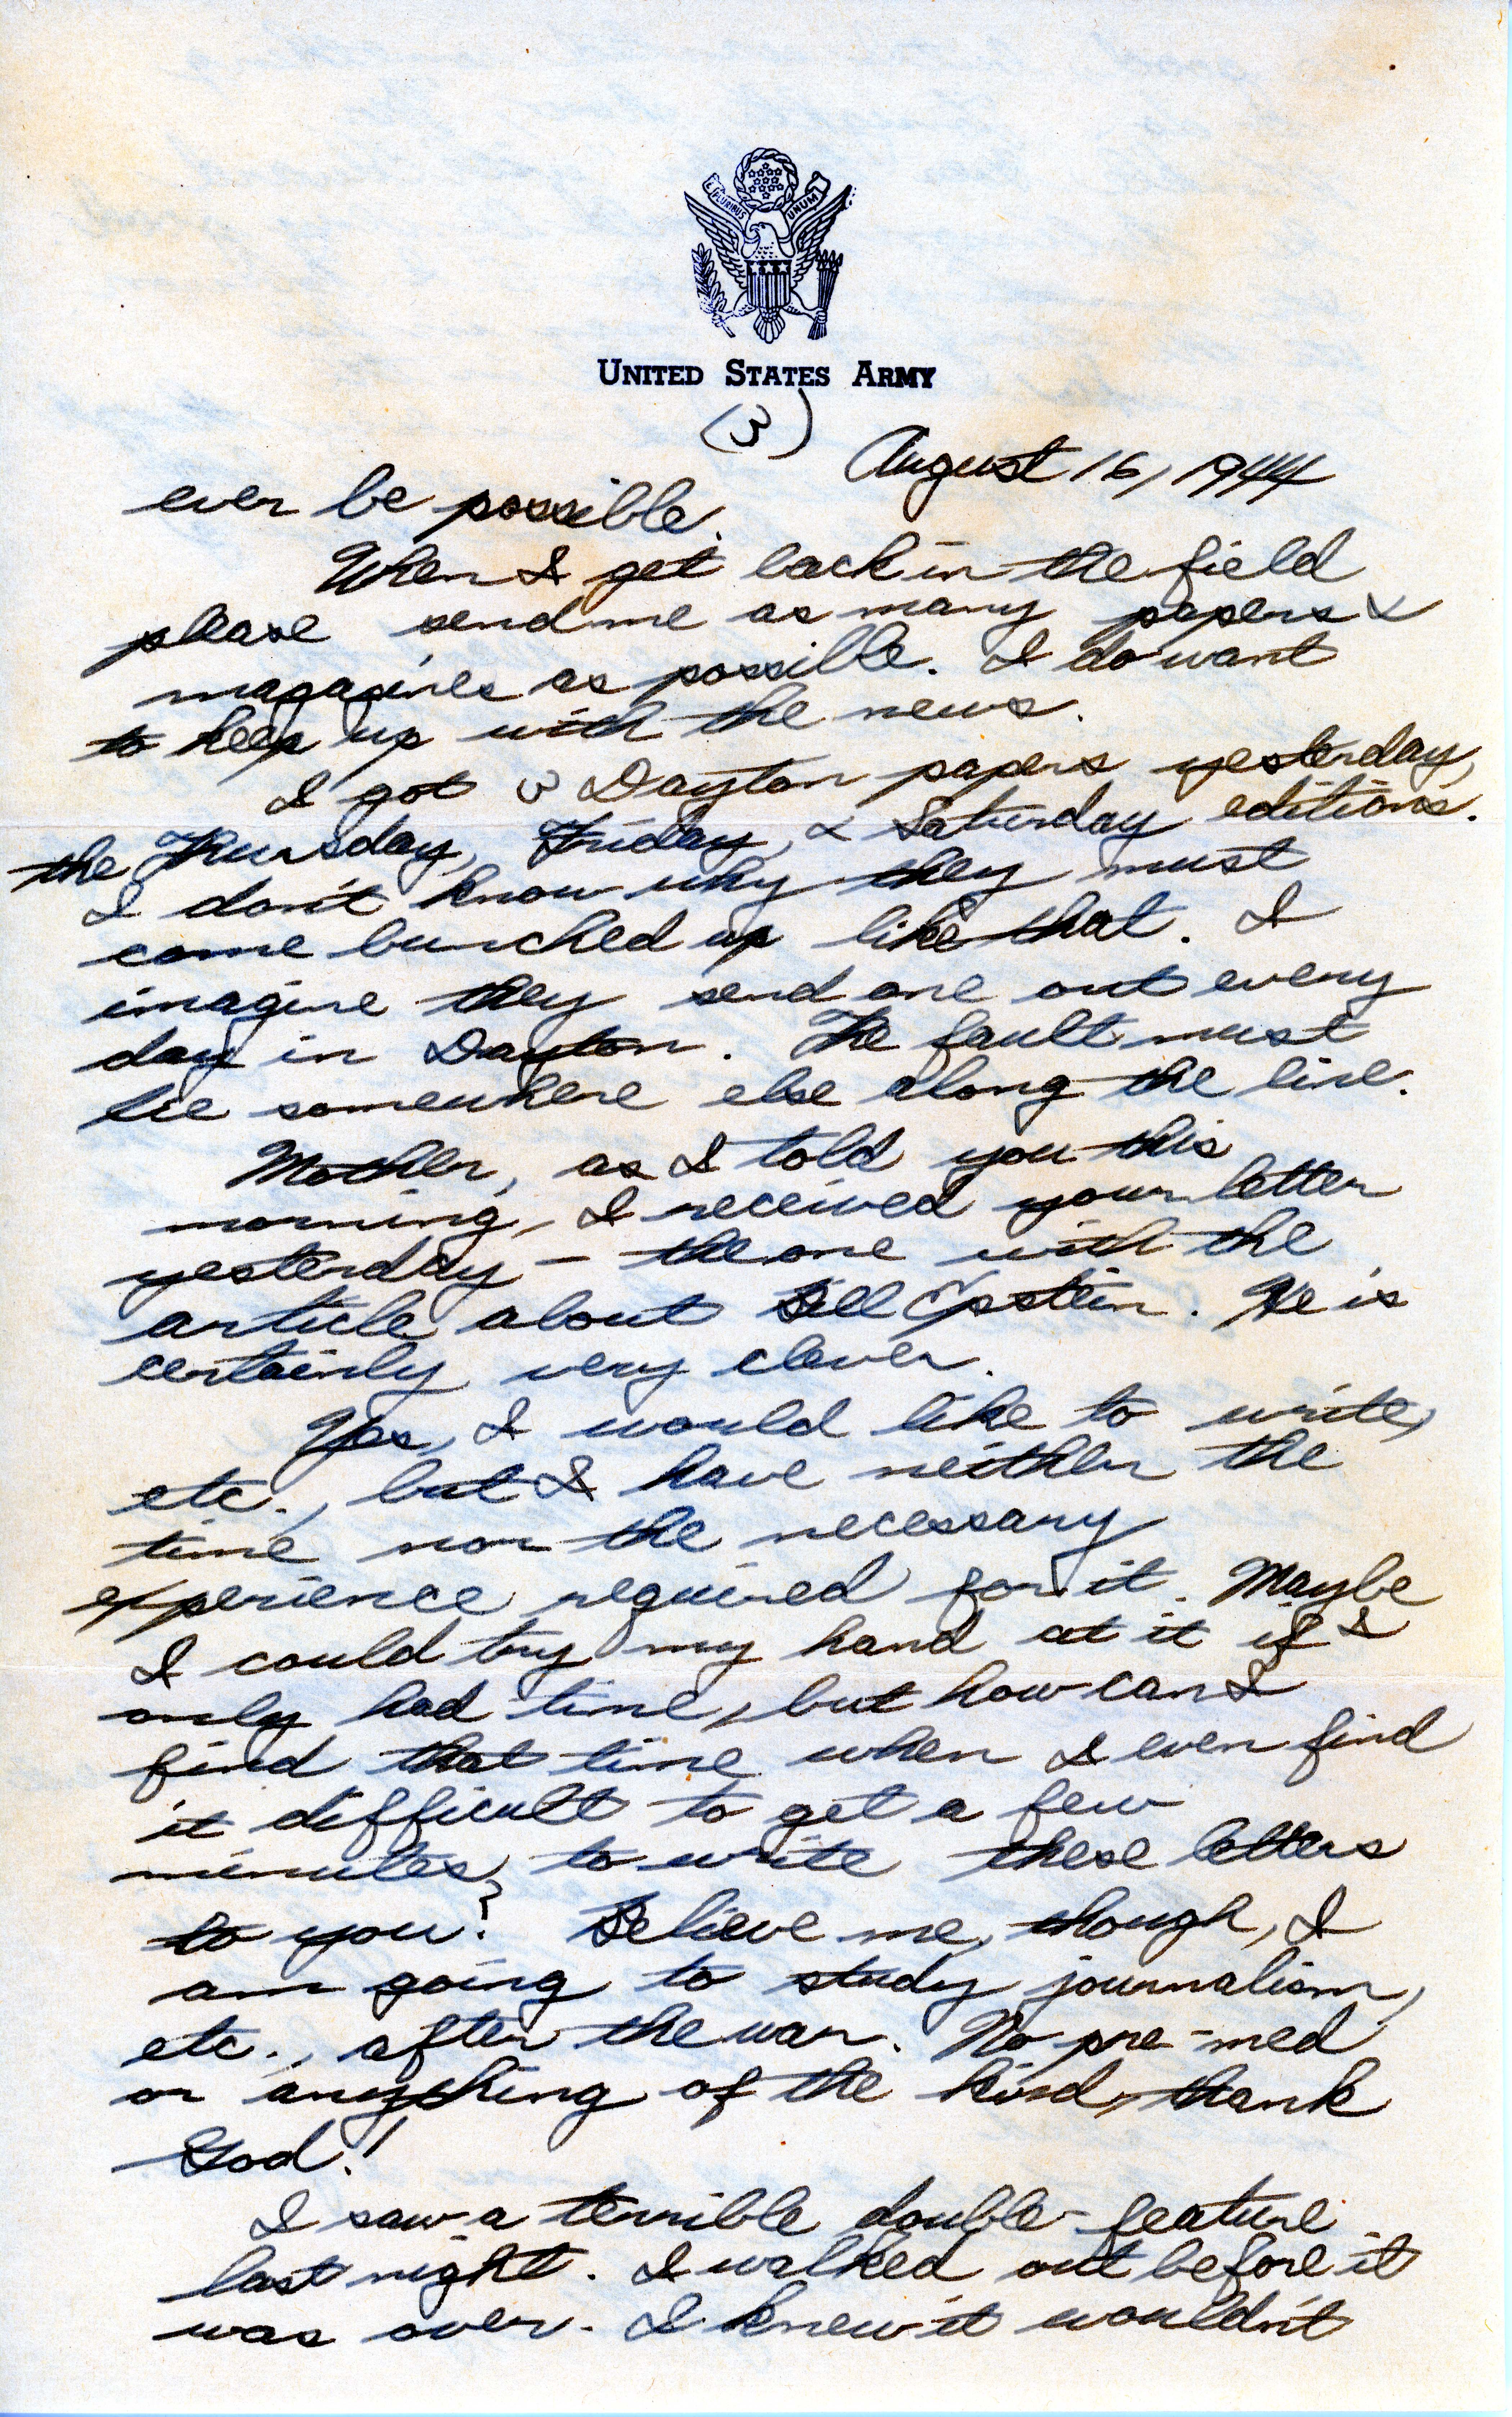 E PLURIBUS UNUM
UNITED STATES ARMY
(3)
August 16, 1944
ever be possible.
When I get back in the field
please send me as many papers &
magazines as possible. I do want
to keep up with the news.
I got 3 Dayton papers yesterday,
the Thursday, Friday, & Saturday editions.
I don't know why they must
come bunched up like that. I
imagine they send one out every
day in Dayton. The fault must
lie somewhere else along the line.
Mother, as I told you this
morning, I received your letter
yesterday – the one with the
article about Bill Epstein. He is
certainly very clever.
Yes, I would like to write,
etc., but I have neither the
time nor the necessary
experience required for it. Maybe
I could try my hand at it if I
only had time, but how can I
find that time when I even find
it difficult to get a few
minutes to write these letters
to you? Believe me, though, I
am going to study journalism,
etc., after the war. No pre-med
or anything of the kind, thank
God!
I saw a terrible double-feature
last night. I walked out before it
was over. I knew it wouldn't